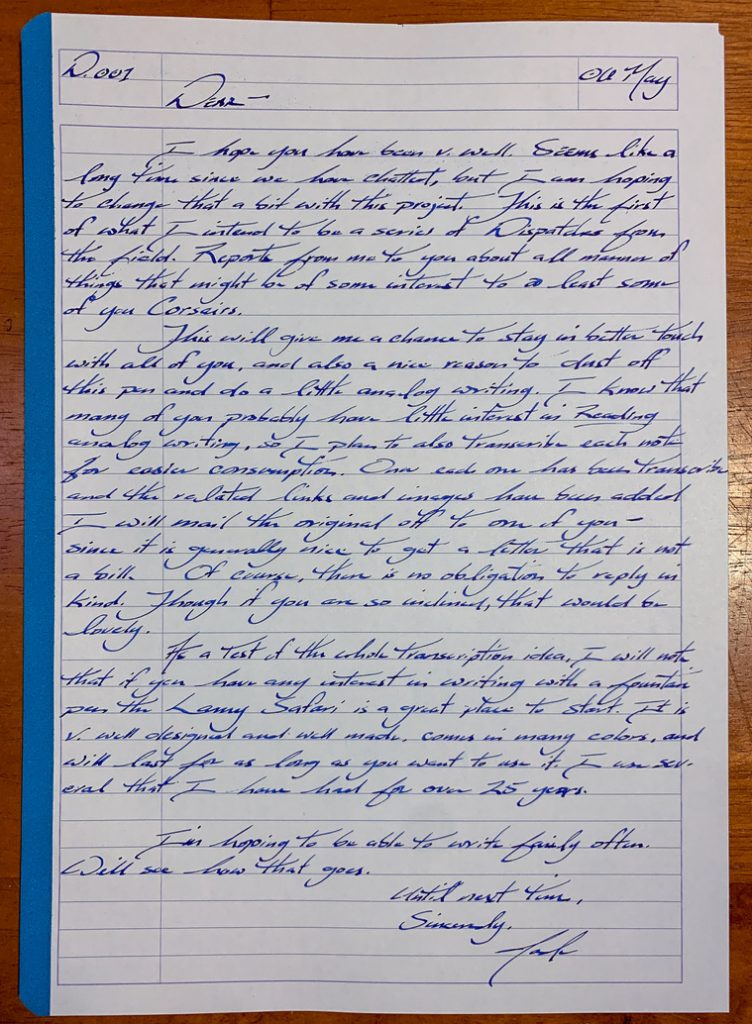 D.001
06 May
Dear—
I hope you have been v. well. Seems like a
long time since we have chatted, but I am hoping
to change that a bit with this project. This is the first
of what I intend to be a series of Dispatches from
the field. Reports from me to you about all manner of
things that might be of some interest to a least some
of you Corsairs.
This will give me a chance to stay in better touch
with all of you, and also a nice reason to dust off
this pen and do a little analog writing. I know that
many of you probably have little interest in Reading
analog writing, so I plan to also transcribe each note
for easier consumption. Once each one has been transcribe
and the related links and images have been added
I will mail the original off to one of you—
since it is generally nice to get a letter that is not
a bill. Of course, there is no obligation to reply in
kind. Though if you are so inclined, that would be
lovely.
As a test of the whole transcription idea, I will note
that if you have any interest in writing with a fountain
pen the Lamy Safari is a great place to start. It is
v. well designed and well made, comes in many colors, and
will last for as long as you want to use it. I use sev-
eral that I have had for over 25 years.
I'm hoping to be able to write fairly often.
Will see how that goes.
Until next time,
Sincerely,